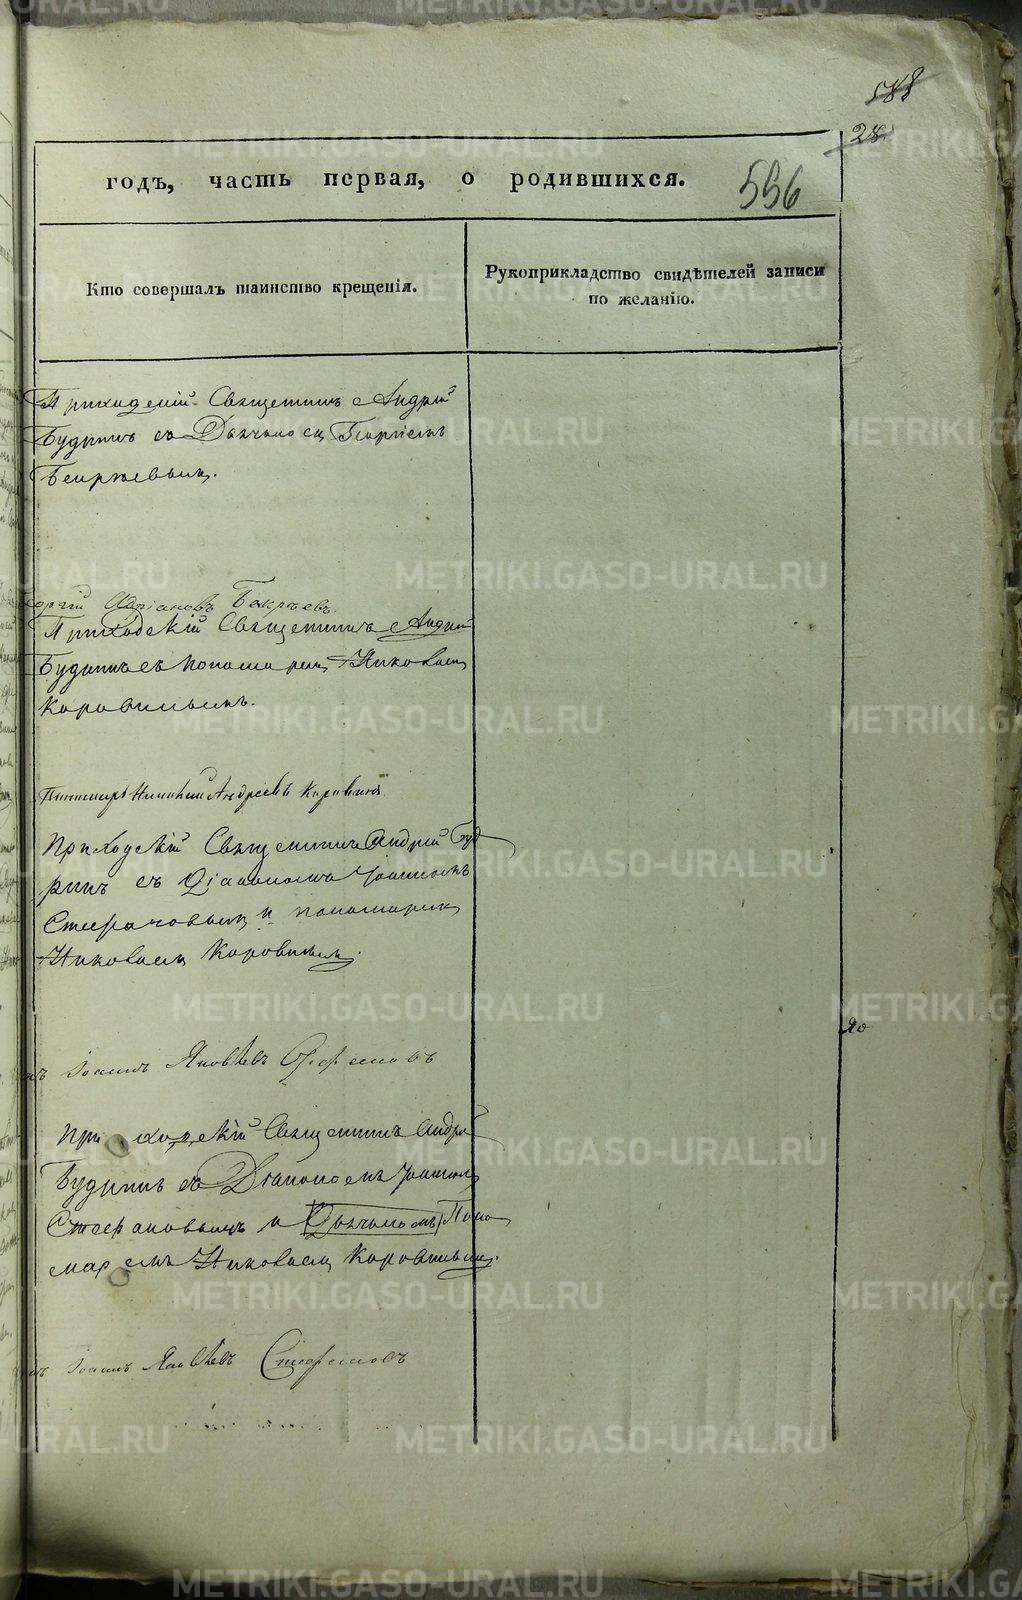 588
28.
годъ, часть первая, о родившихся.
556
Кто совершалъ таинство крещенія.
Рукоприкладство свидѣтелей записи
по желанію.
Приходскій Священникъ Андрей
Будринъ съ Дьячкомъ Георгіемъ
Адріановъ
Приходскій Священникъ Андрей
Будринъ съ пономаремъ Николаемъ
Коровинымъ.
Пономарь Николай Андреевъ Коровинъ
Приходскій Священникъ Андрей Буд
ринъ съ Діакономъ Іоанномъ
Стефановымъ и пономаремъ
Николаемъ Коровинымъ.
Іоаннъ Яковлевъ Стефановъ
Приходскій Священникъ Андрей
Будринъ съ Діакономъ Іоанномъ
Стефановымъ и Дьячкомъ Поно
маремъ Николаемъ Коровинымъ.
Іоаннъ Яковлевъ Стефановъ
METRIKI.GASO-URAL.RU